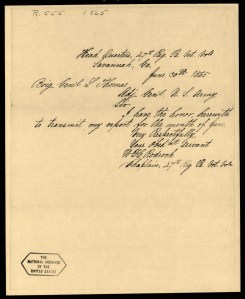 R. 555 1865
Head Quarters, 27th Reg Pt. Vet. Vols
Savannah, Ga.
June 30th 1865
Brig Genl L Thomas
Adj. Genl U. S. Army
Sir
I have the honor, herewith
to transmit my report for the month of June
Very Respectfully
Your Obed't Servant
Chaplain, 27th Reg Pt. Vet. Vols
THE
NATIONAL ARCHIVES
OF THE
UNITED STATES